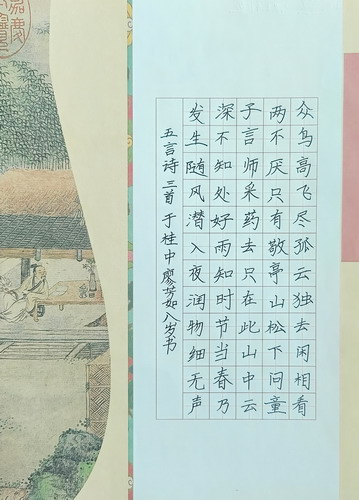 众鸟高飞尽孤云独去闲相看
两不厌只有敬亭山松下问童
子言师采药去只在此山中云
深不知处好雨知时节当春乃
发生随风潜入夜润物细无声
五言诗 三首 于桂中 廖芳如八岁书